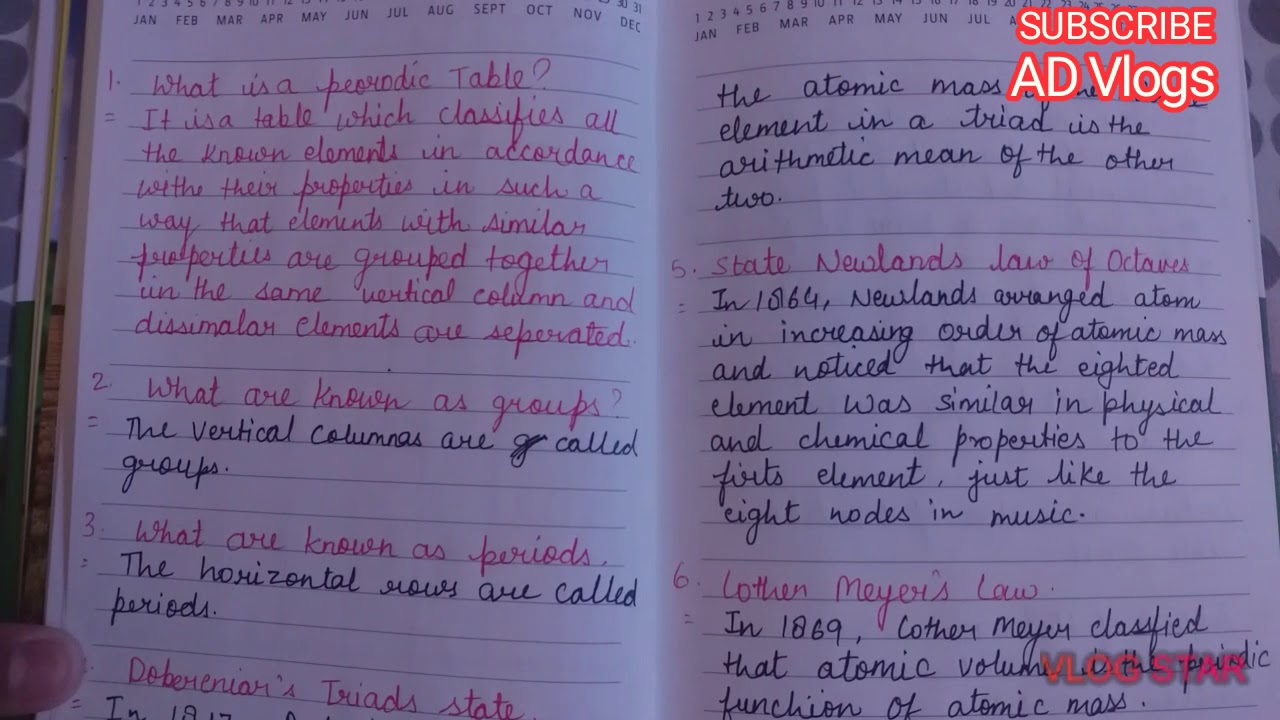 JAN FEB MAR APR MAY JUN JUL AUG SEPT OCT NOV DEC
1. What is a peorodic Table?
= It is a table which classifies all
the known elements in accordance
withe their properties in such a
way that elements with similar
properties are grouped together
in the same vertical column and
dissimalar elements are seperated.
2. What are known as groups?
= The vertical columnas are called
groups.
3. What are known as periods.
= The horizontal rows are called
periods.
Dobereniar's Triads state.
= In 1817,
1 2 3 4 5 6 7 8 9 10 11 12 13 14 15 16 17 18 19 20 21
JAN FEB MAR APR MAY JUN JUL
SUBSCRIBE
AD Vlogs
the atomic mass
element in a triad is the
arithmetic mean of the other
two.
5. State Newlands law of Octaves
= In 1864, Newlands arranged atom
in increasing order of atomic mass
and noticed that the eighted
element was similar in physical
and chemical properties to the
firts element, just like the
eight nodes in music.
6. Lother Meyer's Law.
= In 1869, Lother Meyer classfied
that atomic volume is the periodic
funchion of atomic mass.
VLOG STAR